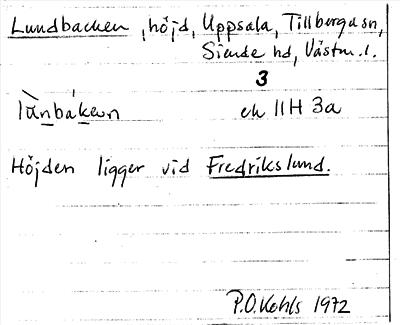 Lundbacken, höjd, Uppsala, Tillberga sn,
Siende hd, Västm. l.
3
lùnbáken ek 11H 3a
Höjden ligger vid Fredrikslund.
P.O. Kohls 1972